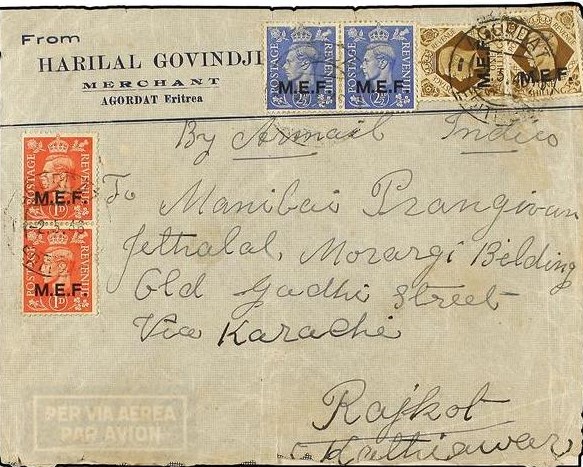 From
HARILAL GOVINDJI
MERCHANT
AGORDAT Eritrea
POSTAGE REVENUE
M.E.F.
2½D
POSTAGE REVENUE
M.E.F.
2½D
M.E.F.
M.E.F.
AGORDAT
By Airmail Indico
POSTAGE REVENUE
M.E.F.
1D
POSTAGE REVENUE
M.E.F.
1D
To Manibai Prangivan
Jethalal, Morargi Belding
Old Gadhi Street
Via Karachi
Rajkot
Kathiawar
PER VIA AEREA
PAR AVION